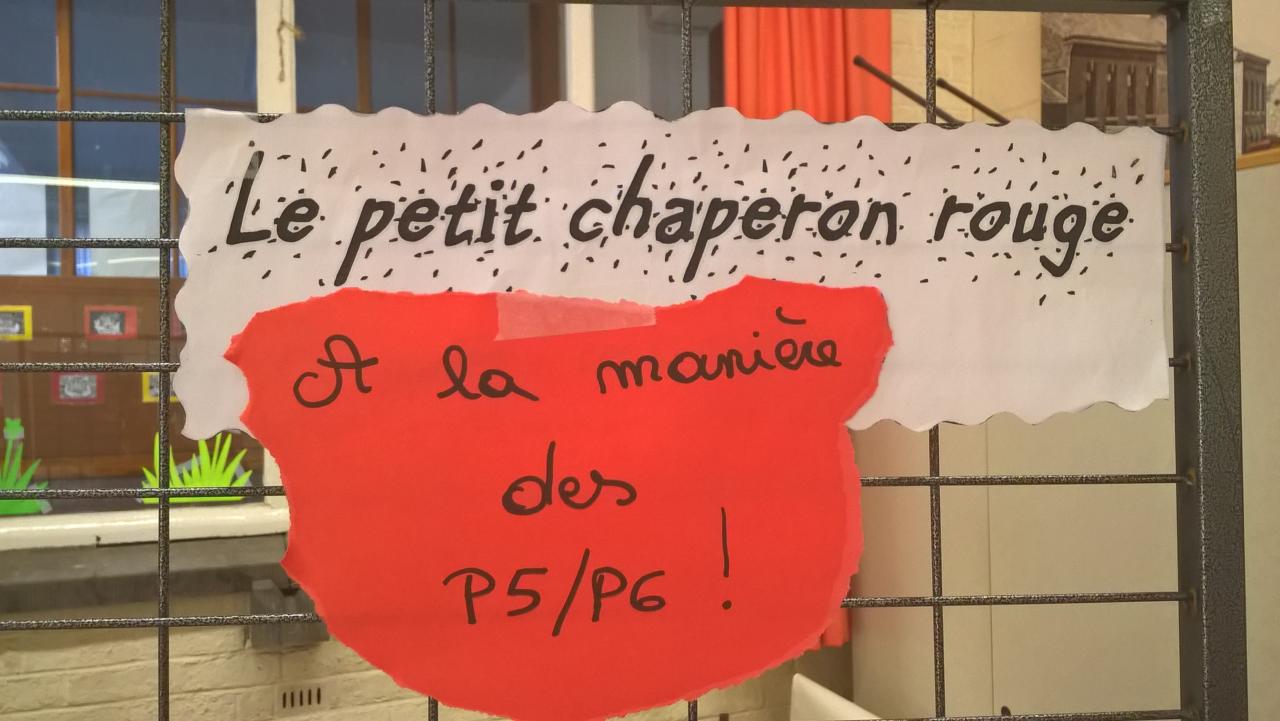 Le petit chaperon rouge
A la manière
des
P5/P6 !